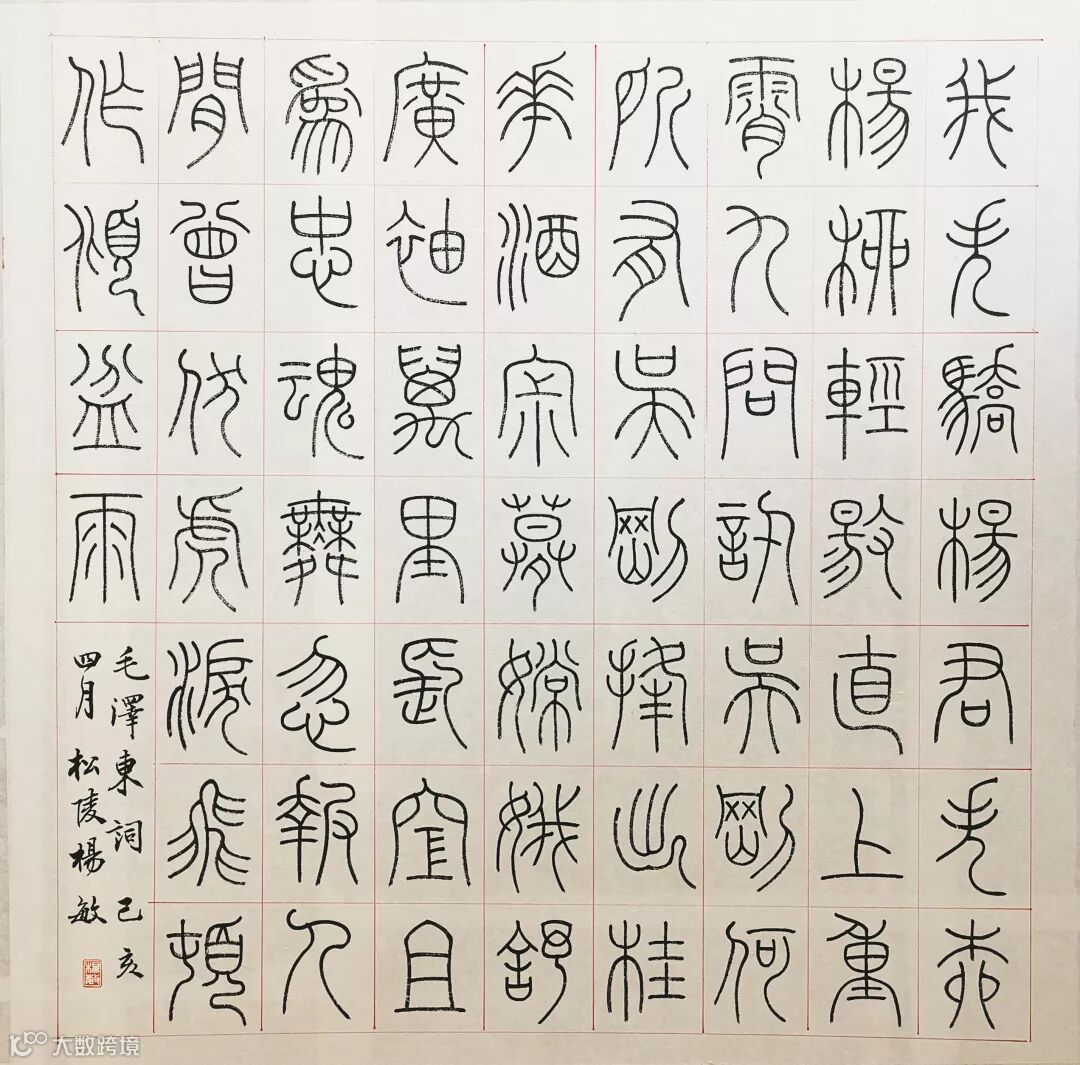 我失驕楊君失柳
楊柳輕颺直上重
霄九問訊吳剛何
所有吳剛捧出桂
花酒寂寞嫦娥舒
廣袖萬里長空且
爲忠魂舞忽報人
間曾伏虎淚飛頓
作傾盆雨
毛澤東詞 己亥
四月 松陵楊敏
大数跨境